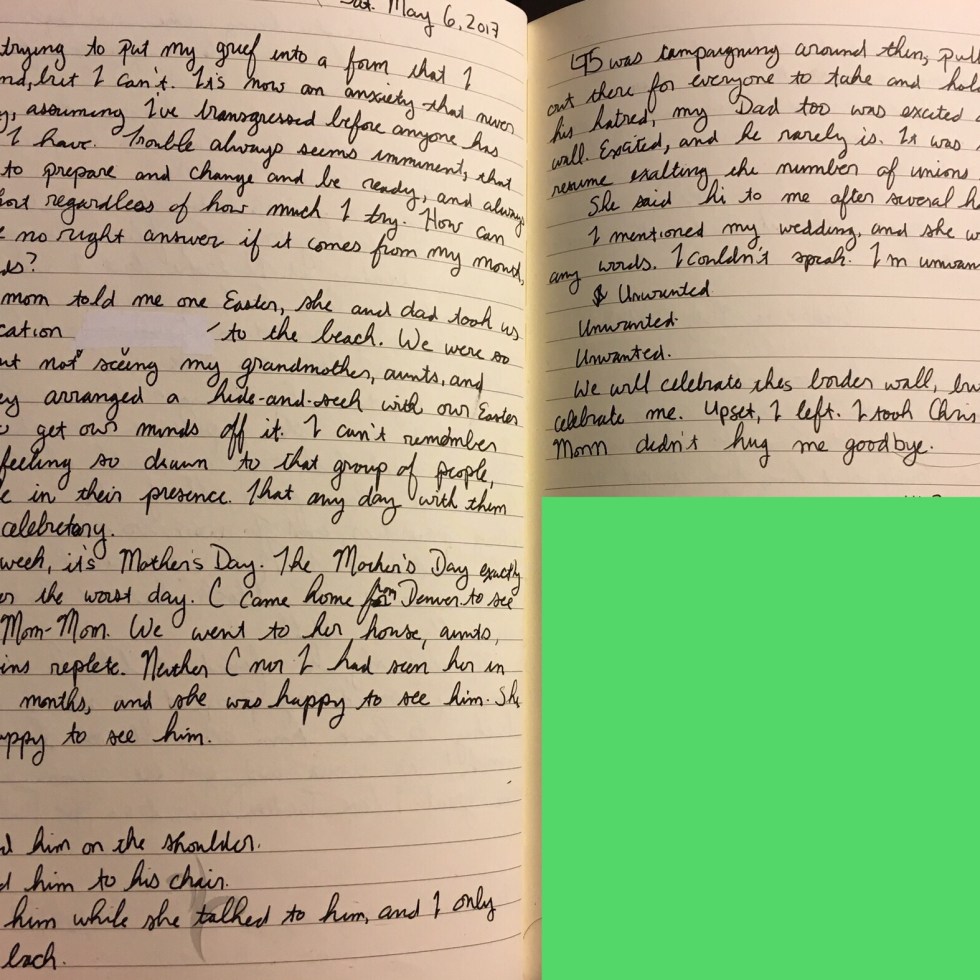 Sat. May 6, 2017
trying to put my grief into a form that I
nd, but I can't. It's now an anxiety that never
y, assuming I've transgressed before anyone has
I have. Trouble always seems imminent, that
to prepare and change and be ready, and always
hort regardless of how much I try. How can
e no right answer if it comes from my mouth,
ds?
mom told me one Easter, she and dad took us
cation to the beach. We were so
ut not seeing my grandmother, aunts, and
ey arranged a hide-and-seek with our Easter
o get our minds off it. I can't remember
feeling so drawn to that group of people,
e in their presence. That any day with them
celebratory.
week, it's Mother's Day. The Mother's Day exactly
er the worst day. C came home from Denver to see
Mom-Mom. We went to her house, aunts,
ins replete. Neither C nor I had seen her in
months, and she was happy to see him. She
appy to see him.
d him on the shoulder.
d him to his chair.
him while she talked to him, and I only
back.
45 was campaigning around then, pull
out there for everyone to take and hold
his hatred, my Dad too was excited a
wall. Excited, and he rarely is. It was
resume exalting the number of unions
She said hi to me after several h
I mentioned my wedding, and she w
any words. I couldn't speak. I'm unwan
& Unwanted
Unwanted.
Unwanted.
We will celebrate this border wall, bu
celebrate me. Upset, I left. I took Chris
Momm didn't hug me goodbye.